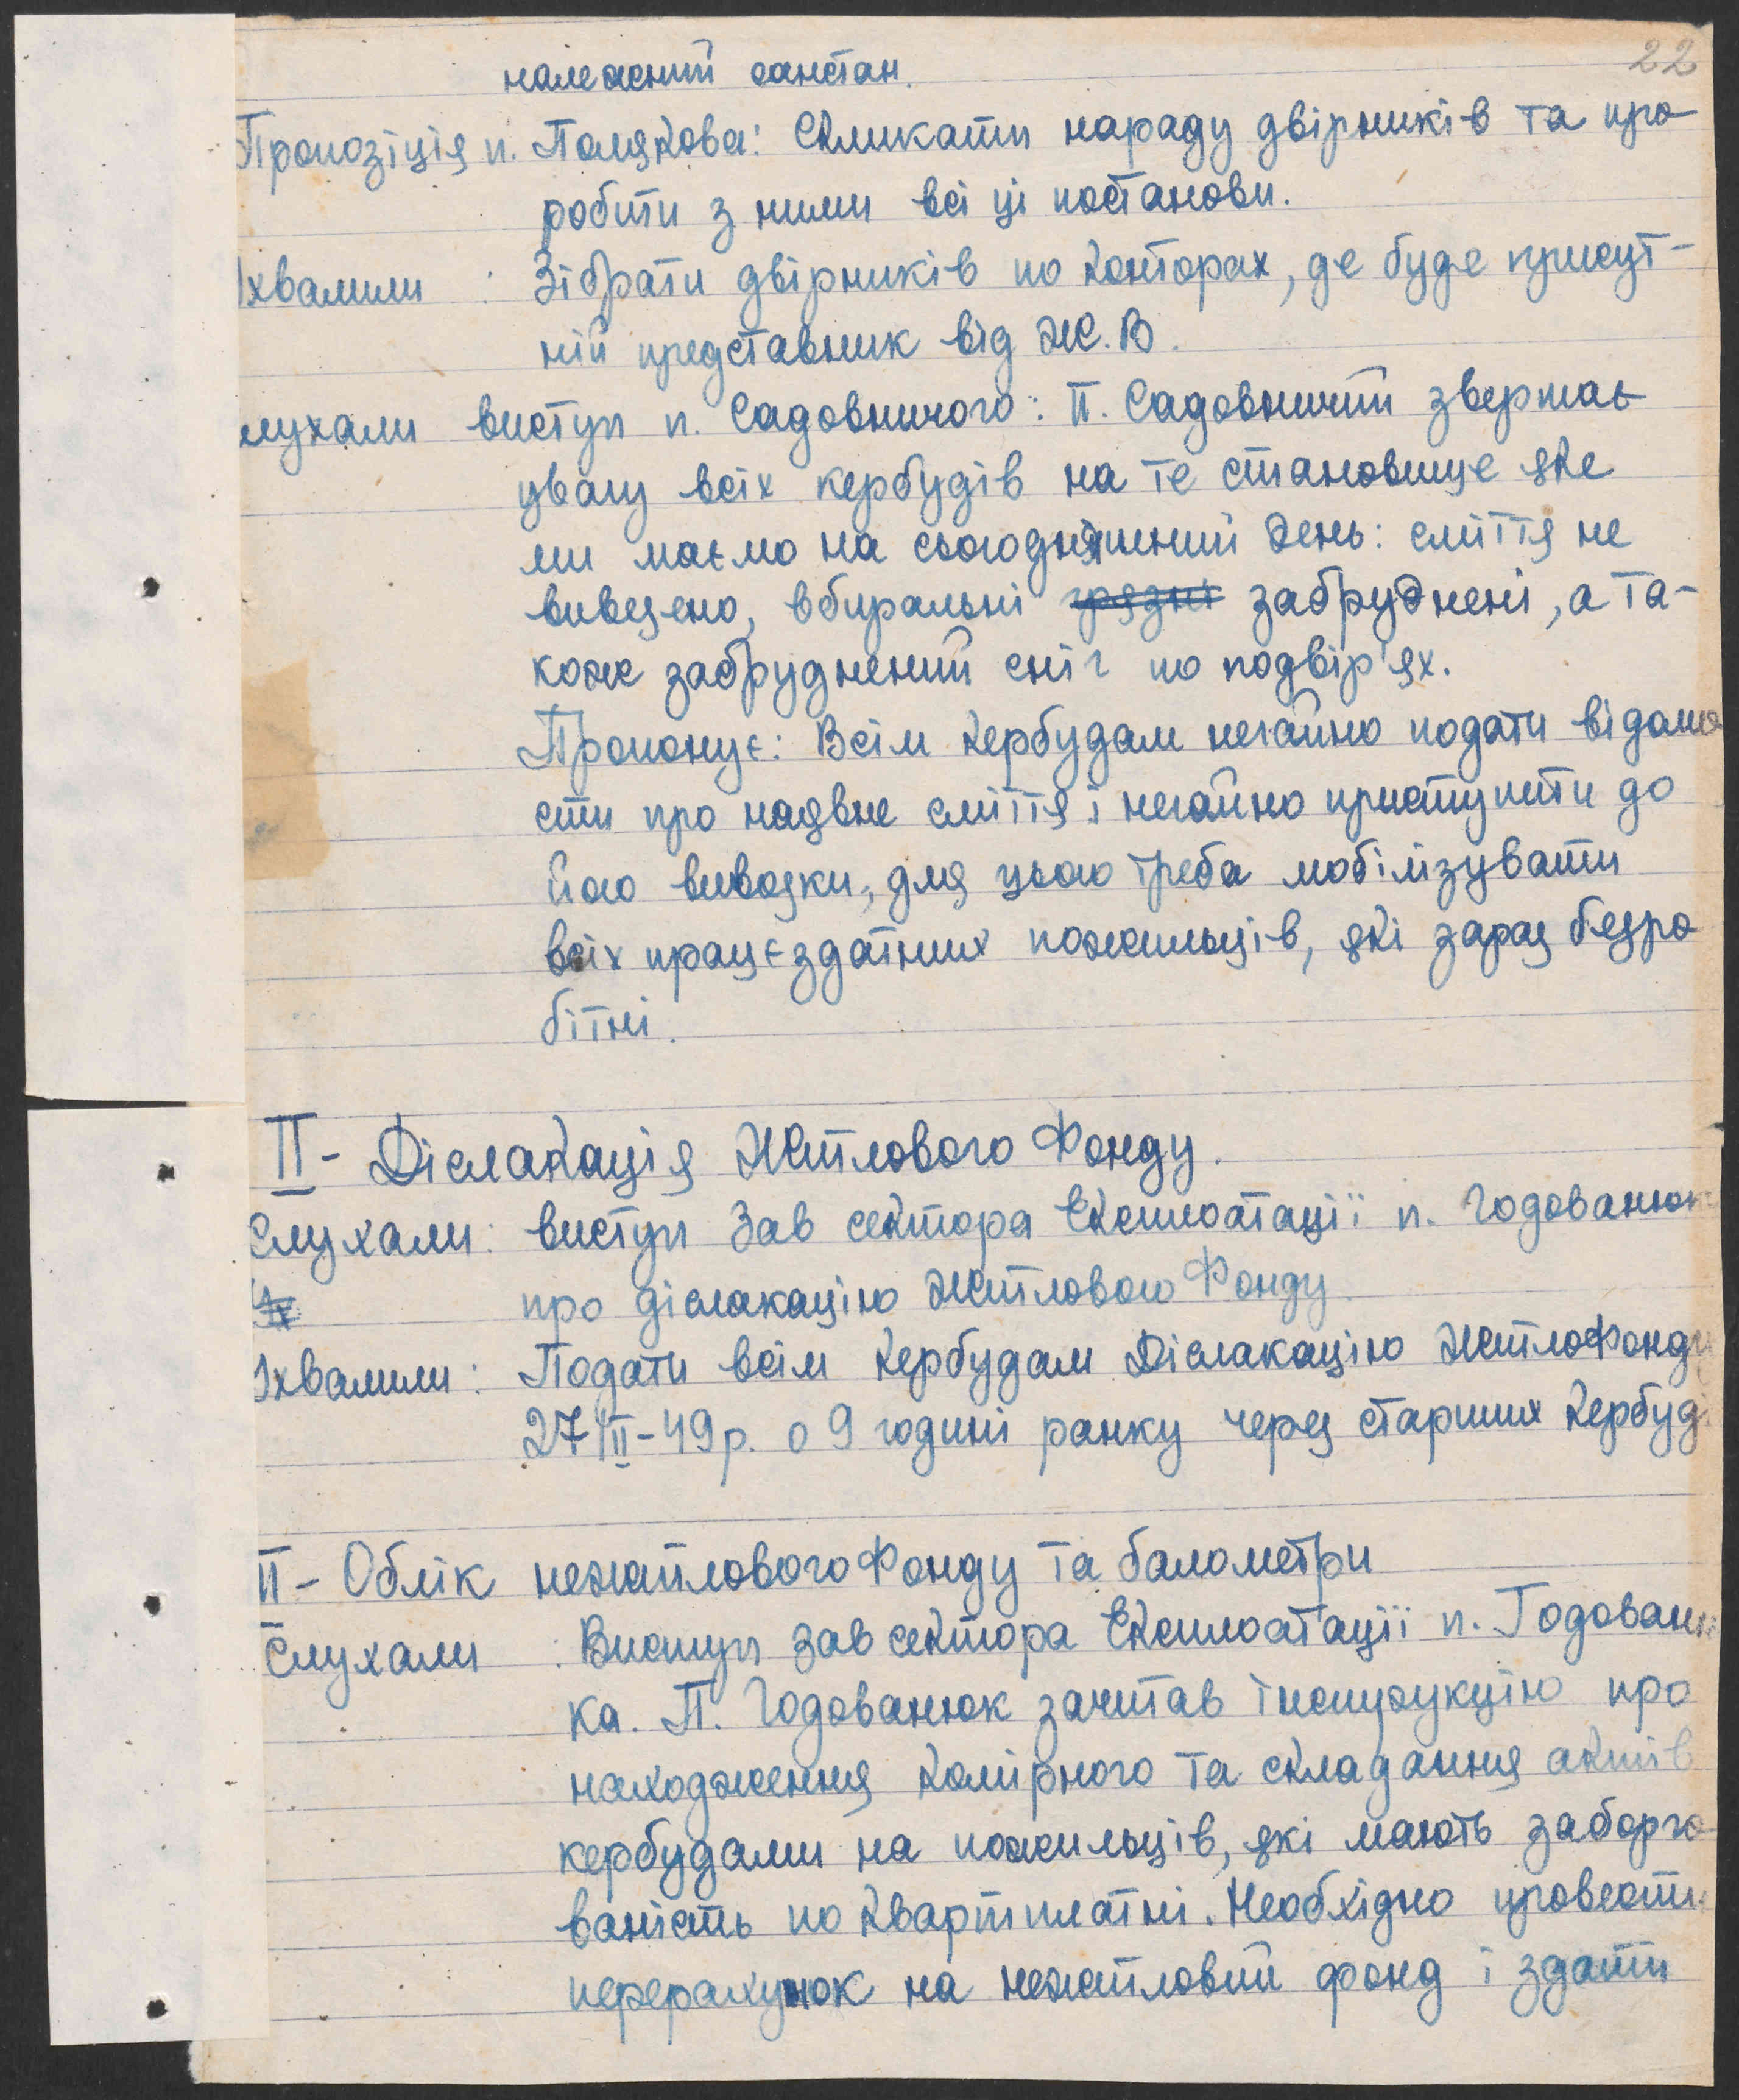 22
належний санстан.
Пропозіція п. Полякова: Скликати нараду двірників та про-
робити з ними всі ці постанови.
хвалили : Зібрати двірників по конторах, де буде присут-
ній представник від Ж.В.
лухали виступ п. Садовничого: П. Садовничий звертає
увагу всіх кербудів на те становище яке
ми маємо на сьогоднішний день: сміття не
вивезено, вбиральні грязні забруднені, а та-
кож забруднений сніг по подвір'ях.
Пропонує: Всім кербудам негайно подати відомо
сти про наявне сміття і негайно приступити до
його вивозки, для цього треба мобілізувати
всіх працєздатних пожильців, які зараз безро
бітні.
II - Діслакація Житлового Фонду.
Слухали: виступ Зав сектора Експлоатації п. Годованюк
про діслакацію Житлового Фонду.
хвалили: Подати всім кербудам Діслакацію ЖитлоФонду
27/II-49р. о 9 годині ранку через старших Кербуді
II - Облік нежитлового Фонду та балометри
Слухали : Виступ зав сектора Експлоатації п. Годованю
ка. П. Годованюк зачитав інструкцію про
находження комірного та складання актів
кербудами на пожильців, які мають заборго
ваність по квартплатні. Необхідно провести
перерахунок на нежитловий фонд і здати